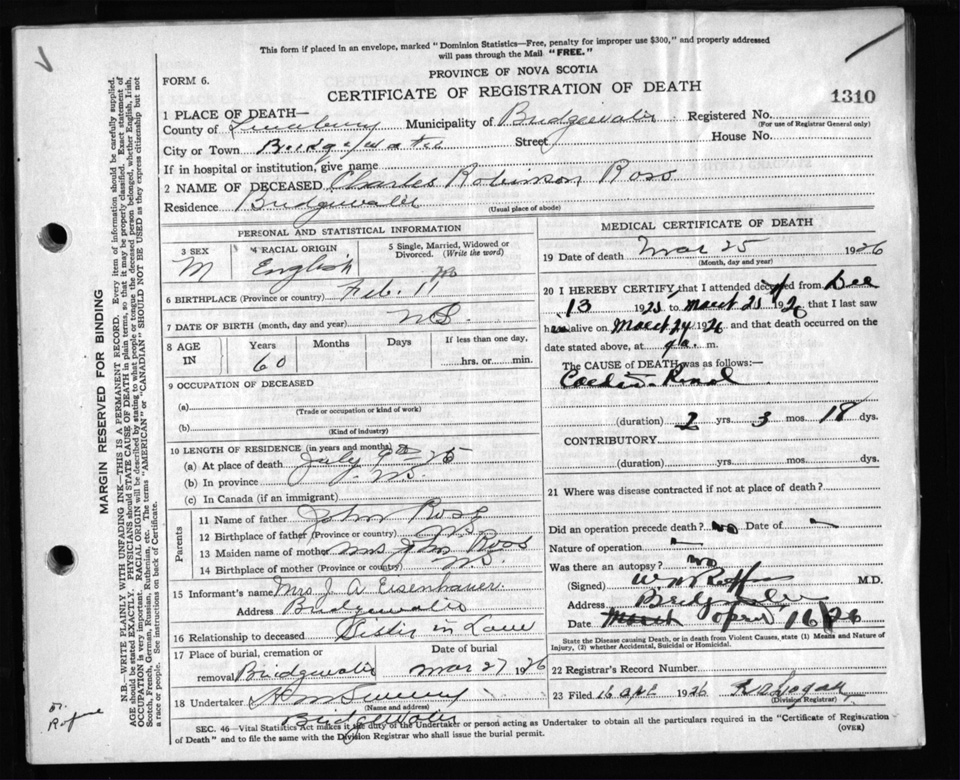 This form if placed in an envelope, marked "Dominion Statistics—Free, penalty for improper use $300," and properly addressed
will pass through the Mail "FREE."
PROVINCE OF NOVA SCOTIA
FORM 6.
CERTIFICATE OF REGISTRATION OF DEATH
1310
1 PLACE OF DEATH—
County of Lunenburg Municipality of Bridgewater Registered No.
(For use of Registrar General only)
City or Town Bridgewater Street House No.
If in hospital or institution, give name
2 NAME OF DECEASED Charles Robinson Ross
Residence Bridgewater
(Usual place of abode)
PERSONAL AND STATISTICAL INFORMATION
3 SEX
M
4 RACIAL ORIGIN
English
5 Single, Married, Widowed or
Divorced. (Write the word)
6 BIRTHPLACE (Province or country) Feb. 11
7 DATE OF BIRTH (month, day and year) N.S.
8 AGE
IN
Years
60
Months
Days
If less than one day,
hrs. or min.
9 OCCUPATION OF DECEASED
(a)
(Trade or occupation or kind of work)
(b)
(Kind of industry)
10 LENGTH OF RESIDENCE (in years and months)
(a) At place of death July 9th 25
(b) In province N.S.
(c) In Canada (if an immigrant)
Parents
11 Name of father John Ross
12 Birthplace of father (Province or country) N.S.
13 Maiden name of mother Mrs John Ross
14 Birthplace of mother (Province or country) N.S.
15 Informant's name Mrs. J. A. Eisenhauer
Address Bridgewater
16 Relationship to deceased Sister in Law
17 Place of burial, cremation or
removal Bridgewater
Date of burial
Mar 27 1926
18 Undertaker
(Name and address)
Bridgewater
MEDICAL CERTIFICATE OF DEATH
19 Date of death Mar 25 1926
(Month, day and year)
20 I HEREBY CERTIFY that I attended deceased from Dec
13 1925 to March 25 1926 that I last saw
him alive on March 24 1926 and that death occurred on the
date stated above, at 9 a. m.
The CAUSE of DEATH was as follows:—
Cardio-Renal
(duration) 2 yrs. 3 mos. 18 dys.
CONTRIBUTORY
(duration) yrs. mos. dys.
21 Where was disease contracted if not at place of death?
Did an operation precede death? no Date of –
Nature of operation –
Was there an autopsy? no
(Signed) M.D.
Address Bridgewater
Date March April 16/26
State the Disease causing Death, or in death from Violent Causes, state (1) Means and Nature of
Injury, (2) whether Accidental, Suicidal or Homicidal.
22 Registrar's Record Number
23 Filed 16 Apl 1926
(Division Registrar)
SEC. 46—Vital Statistics Act makes it the duty of the Undertaker or person acting as Undertaker to obtain all the particulars required in the "Certificate of Registration
of Death" and to file the same with the Division Registrar who shall issue the burial permit.
(OVER)
MARGIN RESERVED FOR BINDING
N.B.—WRITE PLAINLY WITH UNFADING INK—THIS IS A PERMANENT RECORD. Every item of information should be carefully supplied.
AGE should be stated EXACTLY. PHYSICIANS should STATE CAUSE OF DEATH in plain terms, so that it may be properly classified. Exact statement of
OCCUPATION is very important. RACIAL ORIGIN will be described by stating to what people or tongue the deceased person belonged, whether English, Irish,
Scotch, French, German, Russian, Ruthenian, etc. The terms "AMERICAN" or "CANADIAN" SHOULD NOT BE USED as they express citizenship but not
a race or people. See instructions on back of Certificate.